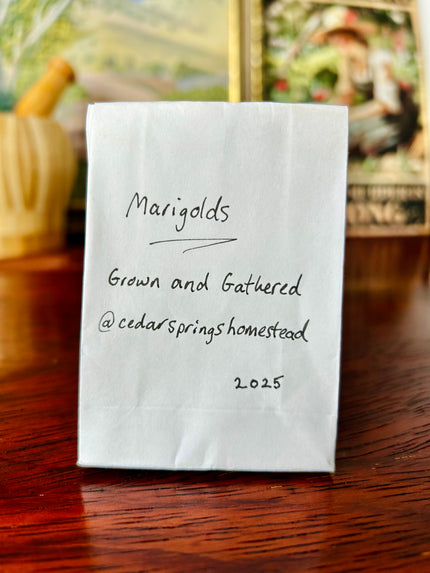 Marigolds
Grown and Gathered
@cedarspringshomestead
2025